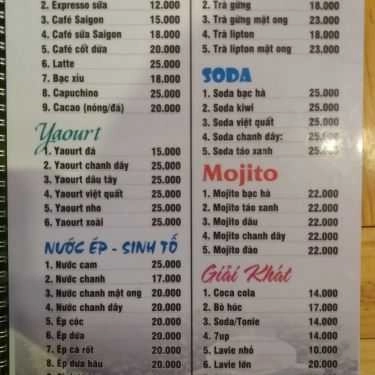 2. Expresso sữa 12.000
3. Café Saigon 15.000
4. Café sữa Saigon 18.000
5. Café cốt dừa 20.000
6. Latte 25.000
7. Bạc xíu 18.000
8. Capuchino 25.000
9. Cacao (nóng/đá) 20.000
Yaourt
1. Yaourt đá 15.000
2. Yaourt chanh dây 25.000
3. Yaourt dâu tây 25.000
4. Yaourt việt quất 25.000
5. Yaourt nho 25.000
6. Yaourt xoài 25.000
NƯỚC ÉP - SINH TỐ
1. Nước cam 25.000
2. Nước chanh 17.000
3. Nước chanh mật ong 20.000
4. Nước chanh dây 20.000
5. Ép cóc 20.000
6. Ép dứa 20.000
7. Ép cà rốt 20.000
8. Ép dưa hấu 20.000
2. Trà gừng 18.000
3. Trà gừng mật ong 23.000
4. Trà lipton 18.000
5. Trà lipton mật ong 23.000
SODA
1. Soda bạc hà 25.000
2. Soda kiwi 25.000
3. Soda việt quất 25.000
4. Soda chanh dây: 25.000
5. Soda táo xanh 25.000
Mojito
1. Mojito bạc hà 22.000
2. Mojito táo xanh 22.000
3. Mojito dâu 22.000
4. Mojito chanh dây 22.000
5. Mojito đào 22.000
Giải Khát
1. Coca cola 14.000
2. Bò húc 17.000
3. Soda/Tonie 14.000
4. 7up 14.000
5. Lavie nhỏ 10.000
6. Lavie lớn 20.000